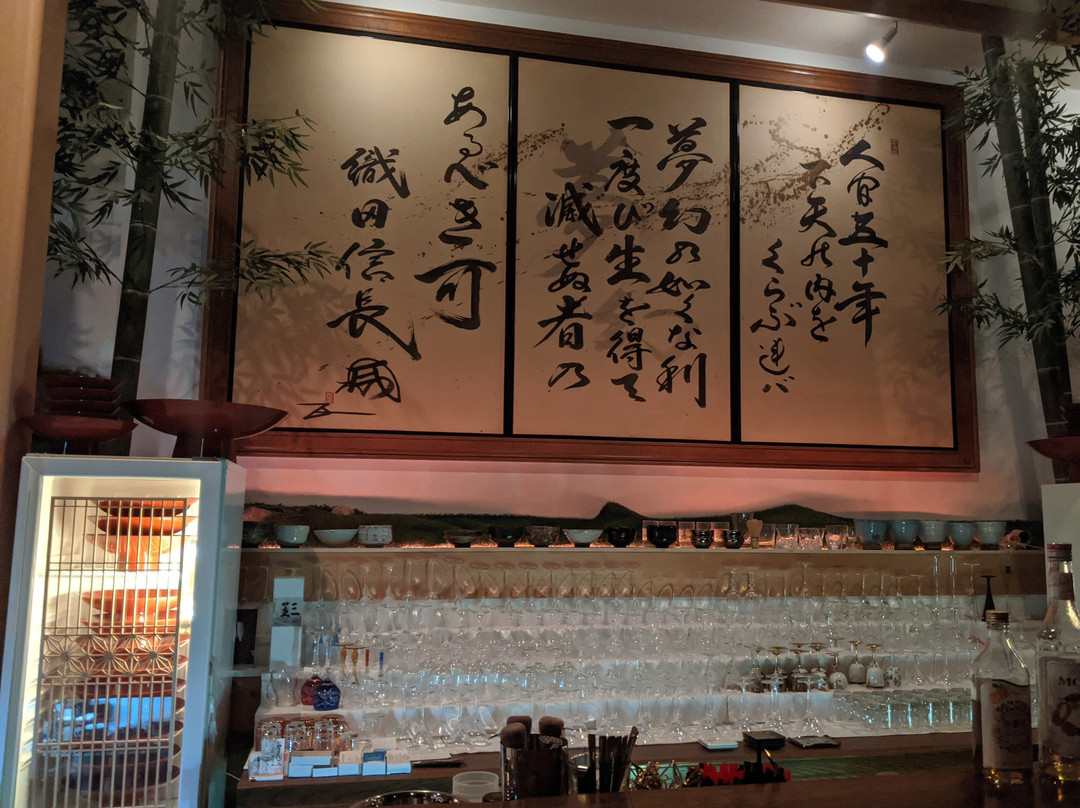 人間五十年
下天の内を
くらぶ連バ
夢幻の如くな利
一度び生を得て
滅せぬ者乃
あるべき可
織田信長